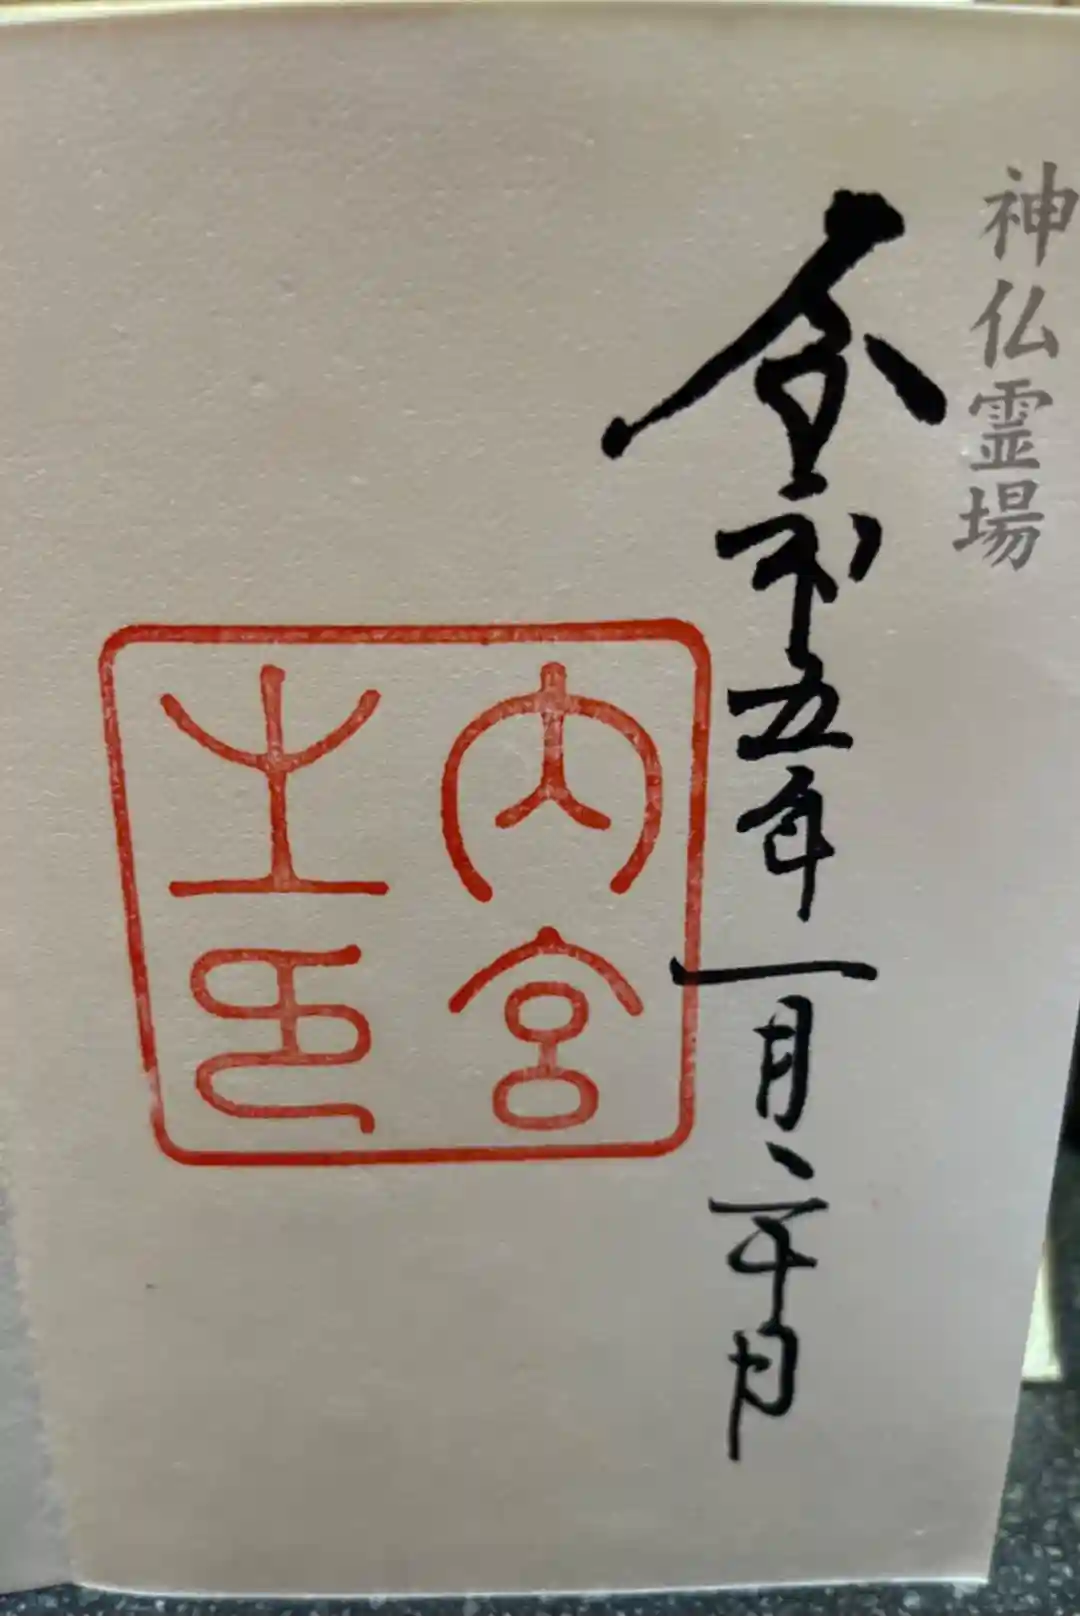 神仏霊場
令和五年一月二十日
内宮
之印